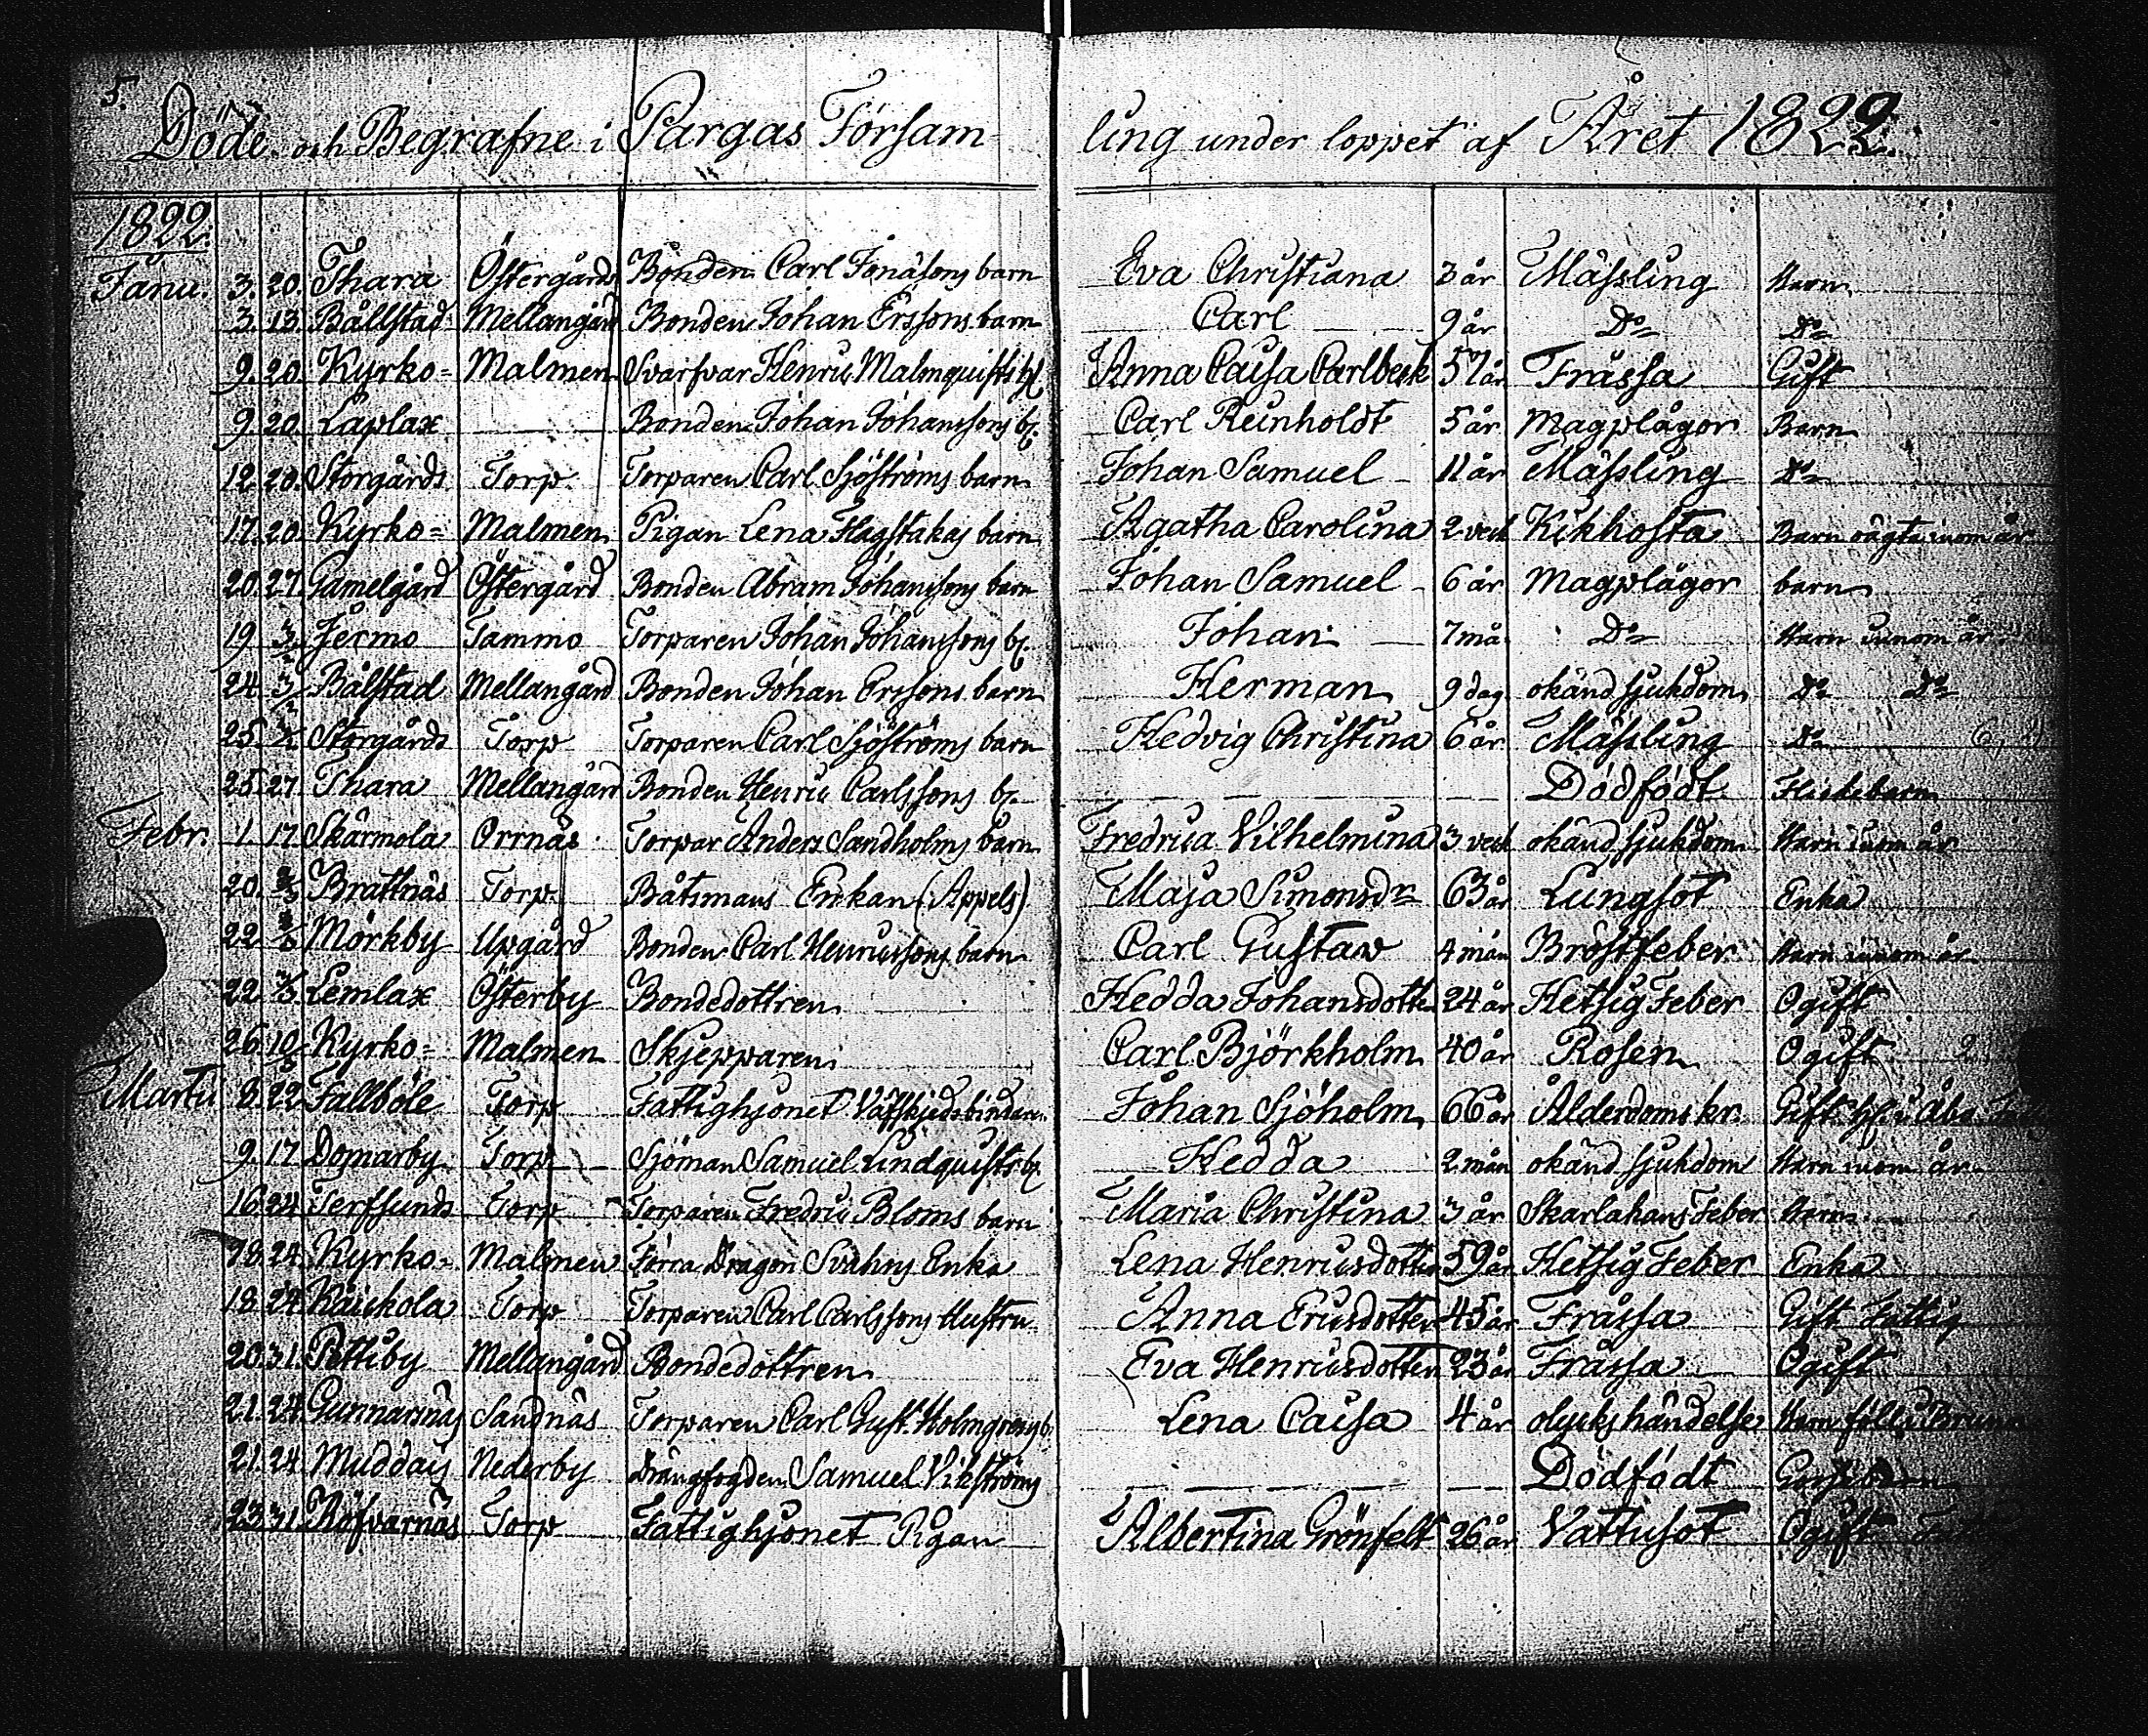 5.
Döde och Begrafne i Pargas Församling under loppet af Året 1822.
1822.
Janu. 3. 20. Thara Östergårds Bonden Carl Jonasons barn Eva Christiana 3 år Mässling Barn
3. 13. Bållstad Mellangård Bonden Johan Erssons barn Carl 9 år Do Do
9. 20. Kyrko= Malmen Svarfvar Henric Malmquists h. Anna Caisa Carlbeck 57 år Frässa Gift
9. 20. Laplax Bonden Johan Johanssons b. Carl Reinholdt 5 år Magplågor Barn
12. 20. Storgårds Torp Torparen Carl Sjöströms barn Johan Samuel 11 år Mässling Do
17. 20. Kyrko= Malmen Pigan Lena Hagstakas barn Agatha Carolina 2 veck Kikhosta Barn oägta inom år
20. 27. Gamelgård Östergård Bonden Abram Johanssons barn Johan Samuel 6 år Magplågor barn
19 3/2 Jermo Tammo Torparen Johan Johanssons b. Johan 7 må. Do Barn innom år
24. 3/2 Bålstad Mellangård Bonden Johan Erssons barn Herman 9 dag. okänd sjukdom Do Do
25. Storgårds Torp Torparen Carl Sjöströms barn Hedvig Christina 6 år Mässling Do
25. 27 Thara Mellangård Bonden Henric Carlssons b. Dödfödt Flickebarn
Febr. 1. 17 Skärmola Orrnäs Torpar Anders Sandholms barn Fredrica Vilhelmina 3 veck okänd sjukdom Barn inom år
20. 3/3 Brattnäs Torp Båtsmans Enkan (Appels) Maja Simonsdr 63 år Lungsot Enka
22. 3/3 Mörkby Upgård Bonden Carl Henricssons barn Carl Gustaw 4 mån Bröstfeber Barn innom år
22 3/3 Lemlax Österby Bondedottren Hedda Johansdotter 24 år Hetsig Feber Ogift
26 10/3 Kyrko= Malmen Skjepparen Carl Björkholm 40 år Rosen Ogift
Martii 8. 22 Fallböle Torp Fattighjonet Johan Sjöholm 66 år Ålderdoms kr. Gift
9. 17 Domarby Torp Sjöman Samuel Lindquists b. Hedda 2 mån okänd sjukdom Barn inom år
16. 24 Terfsunds Torp Torparen Fredric Bloms barn Maria Christina 3 år Skarlakans Feber Barn
18. 24. Kyrko= Malmen Förra Dragon Svahns Enka Lena Henricsdotter 59 år Hetsig Feber Enka
18 24 Kaickola Torp Torparen Carl Carlssons Hustru Anna Ericsdotter 45 år Frässa Gift Fattig
20. 31. Pettiby Mellangård Bondedottren Eva Henricsdotter 23 år Frässa Ogift
21. 24. Gunnarsnäs Sandnäs Torparen Carl Gust. Holmgrens b. Lena Caisa 4 år olyckshändelse Barn föll i Brunn
21. 24 Muddais Nederby Drängfogden Samuel Vikströms Dödfödt
23 31. Böfvarnäs Torp Fattighjonet Pigan Albertina Grönfelt 26 år Vattusot Ogift